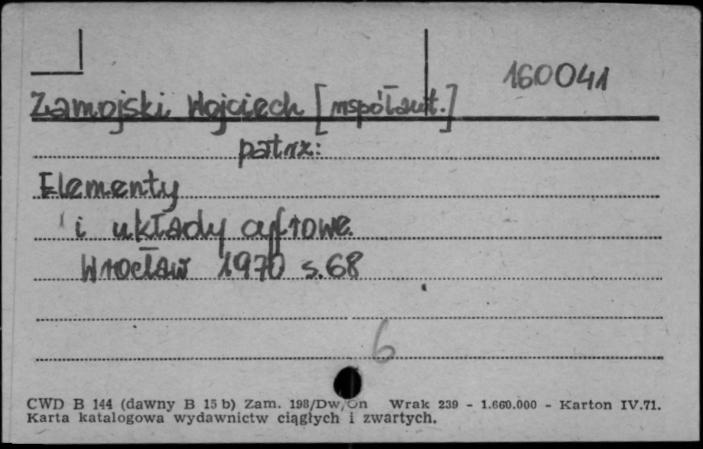 160041
Zamojski Wojciech [współaut.]
patrz:
Elementy
i układy cyfrowe.
Wrocław 1970 s. 68
6
CWD B 144 (dawny B 15 b) Zam. 198/Dw/On Wrak 239 - 1.660.000 - Karton IV.71.
Karta katalogowa wydawnictw ciągłych i zwartych.